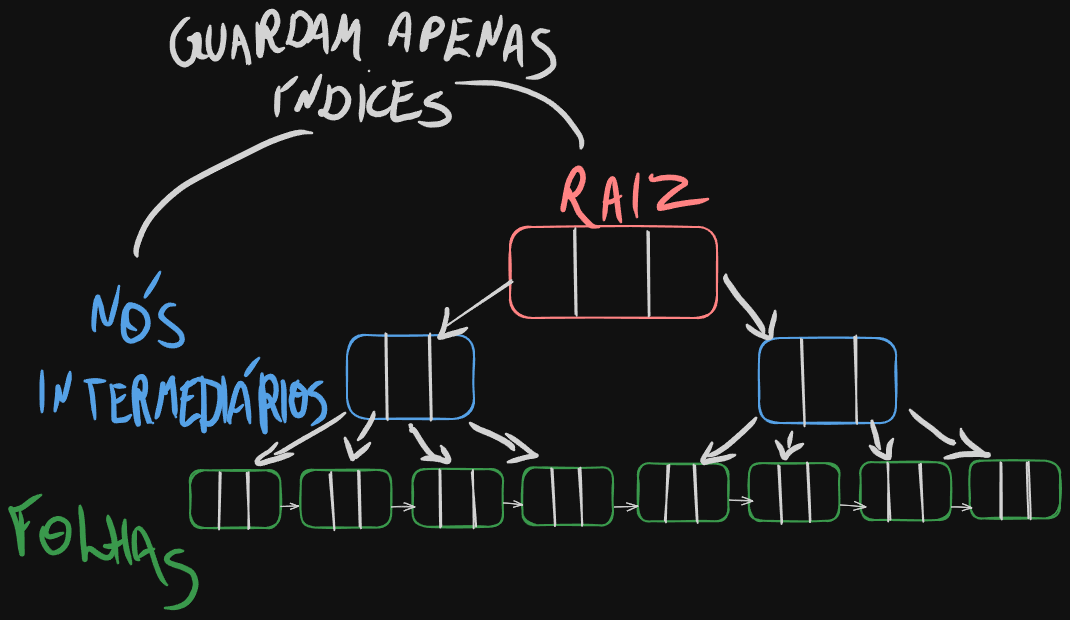 GUARDAM APENAS
ÍNDICES
RAIZ
NÓS
INTERMEDIÁRIOS
FOLHAS